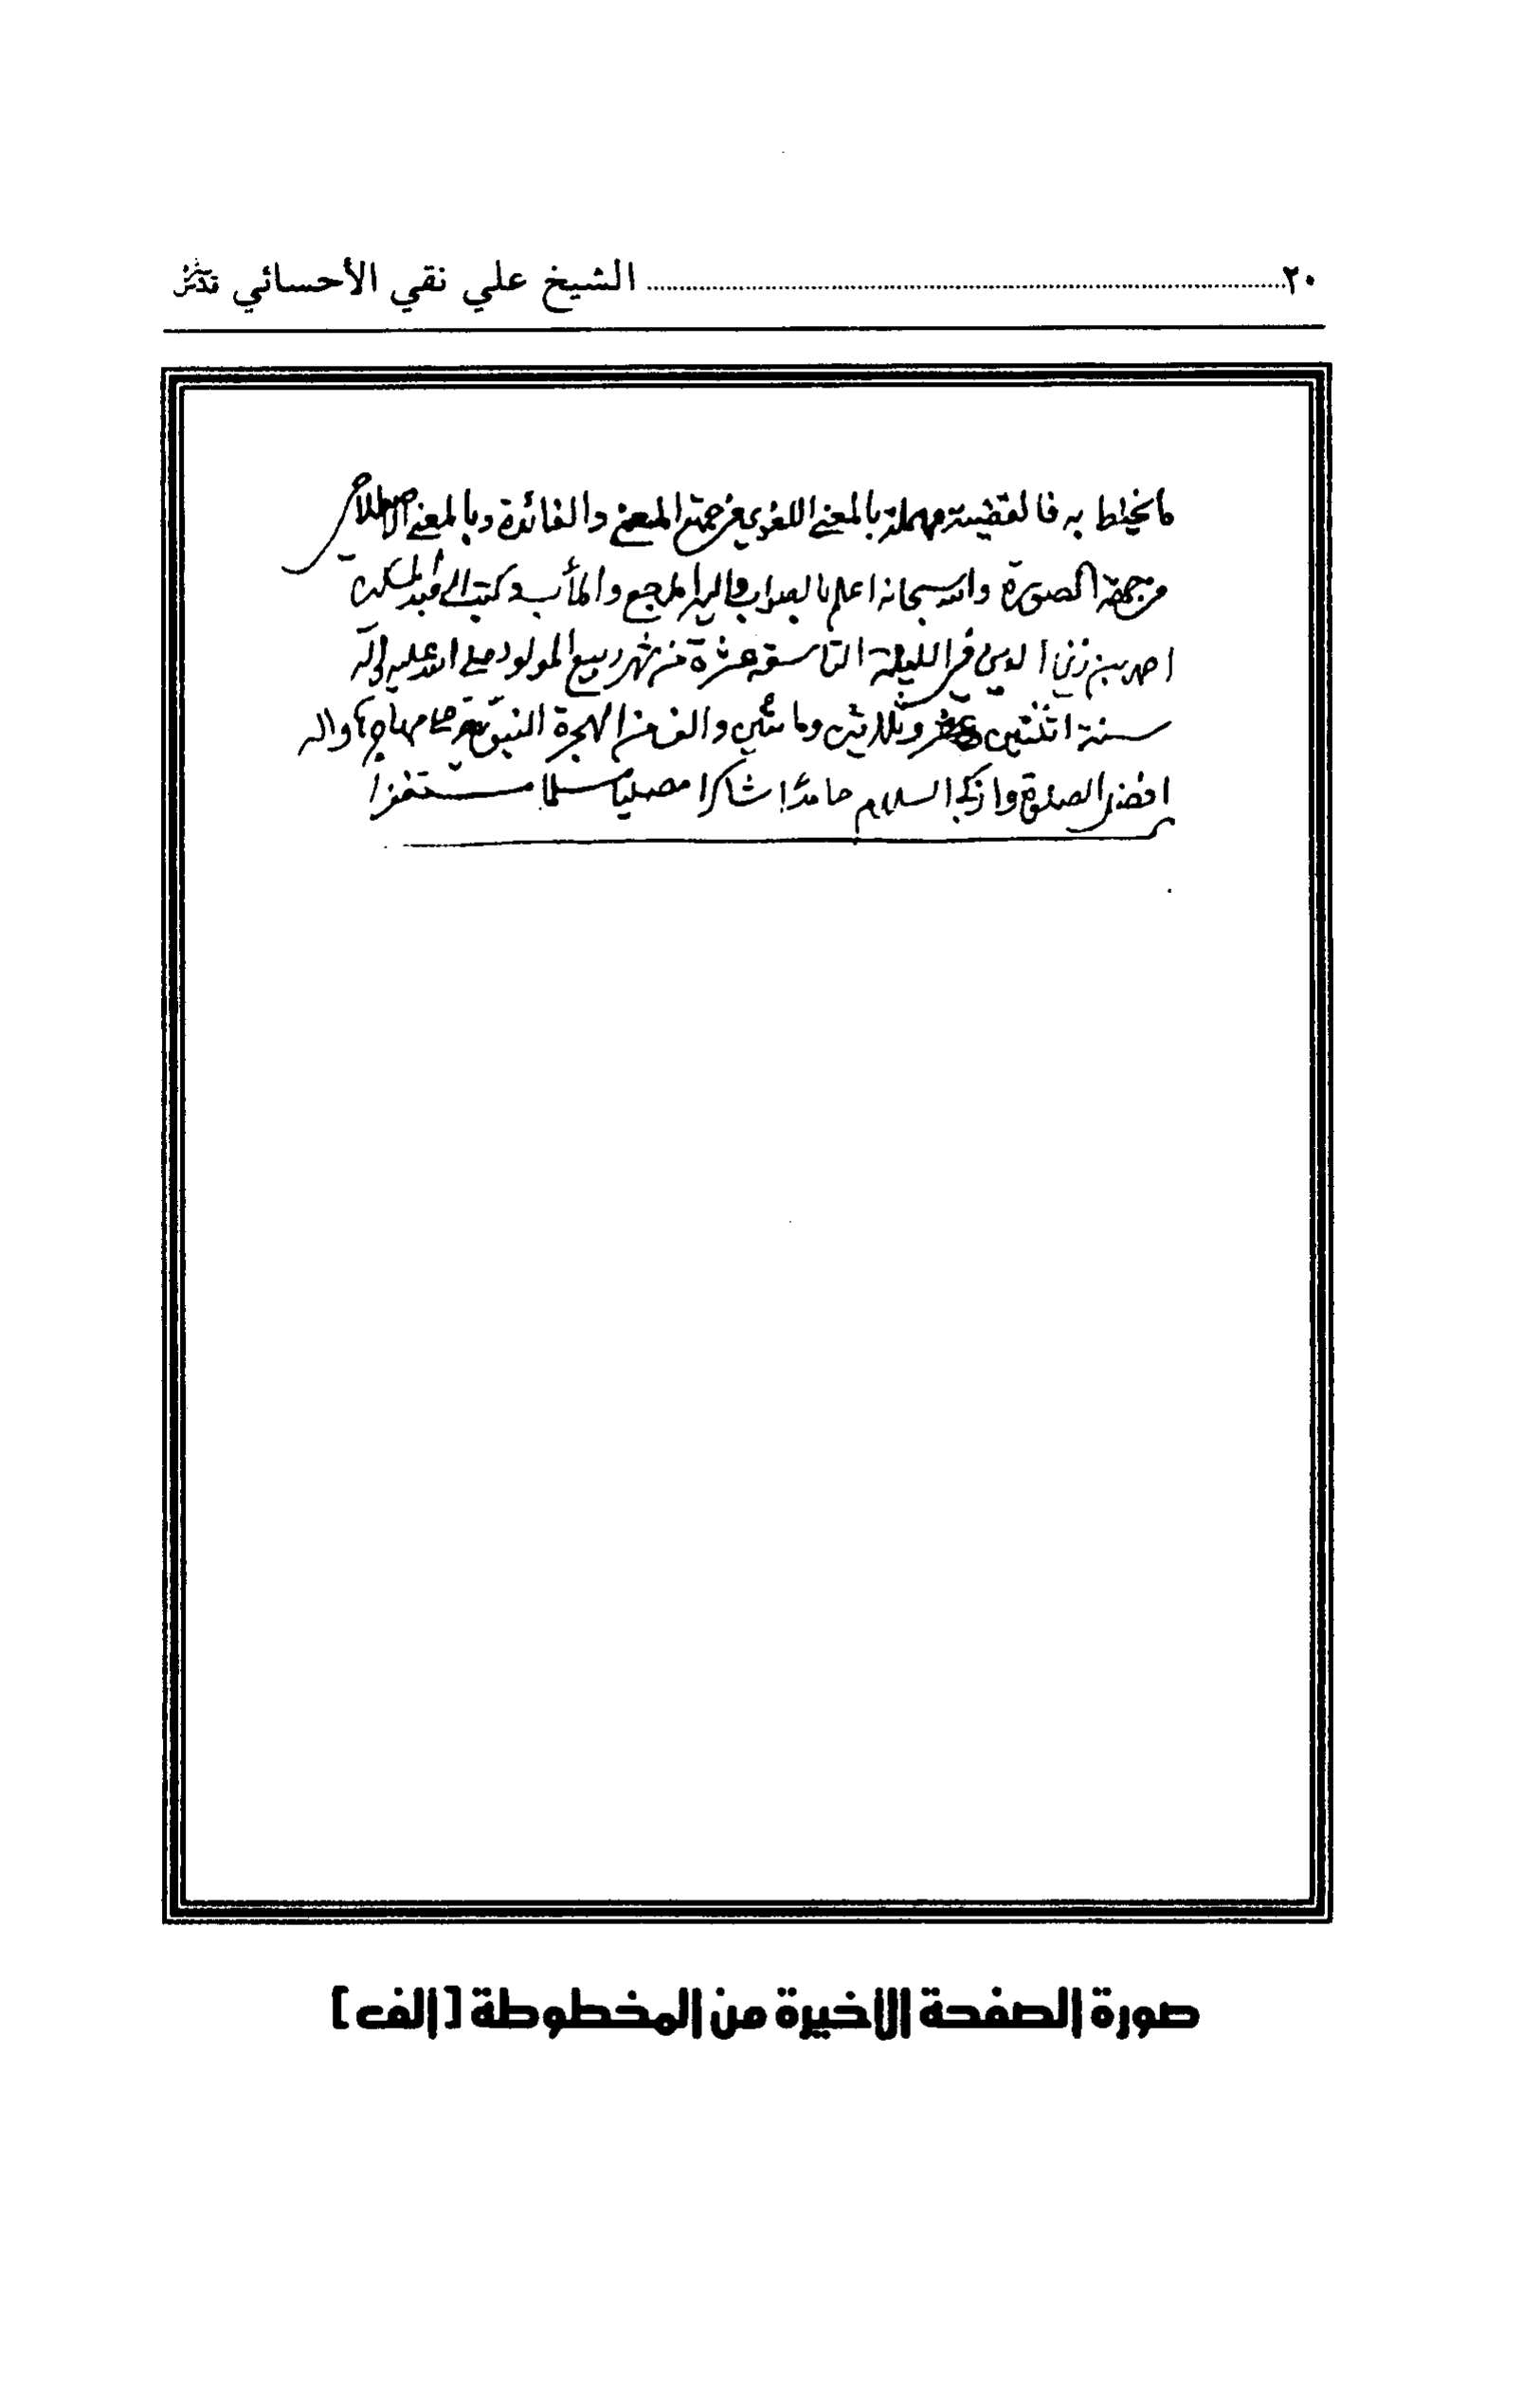 ٢٠ الشيخ علي نقي الأحسائي قدس سره
ما يحيط به فالقضية مهملة بالمعنى اللغوي من جهة المعنى والفائدة وبالمعنى الاصطلاحي
من جهة الصورة والله سبحانه اعلم بالصواب واليه المرجع والمأب وكتب
احمد بن زين الدين في الليلة التاسعة عشرة من شهر ربيع المولود صلى الله عليه وآله
سنة اثنتين وثلاثين ومائتين والف من الهجرة النبوية على مهاجرها واله
افضل الصلوة وازكى السلام حامدًا شاكرا مصليا مسلما مستغفرا
صورة الصفحة الاخيرة من المخطوطة [الف]